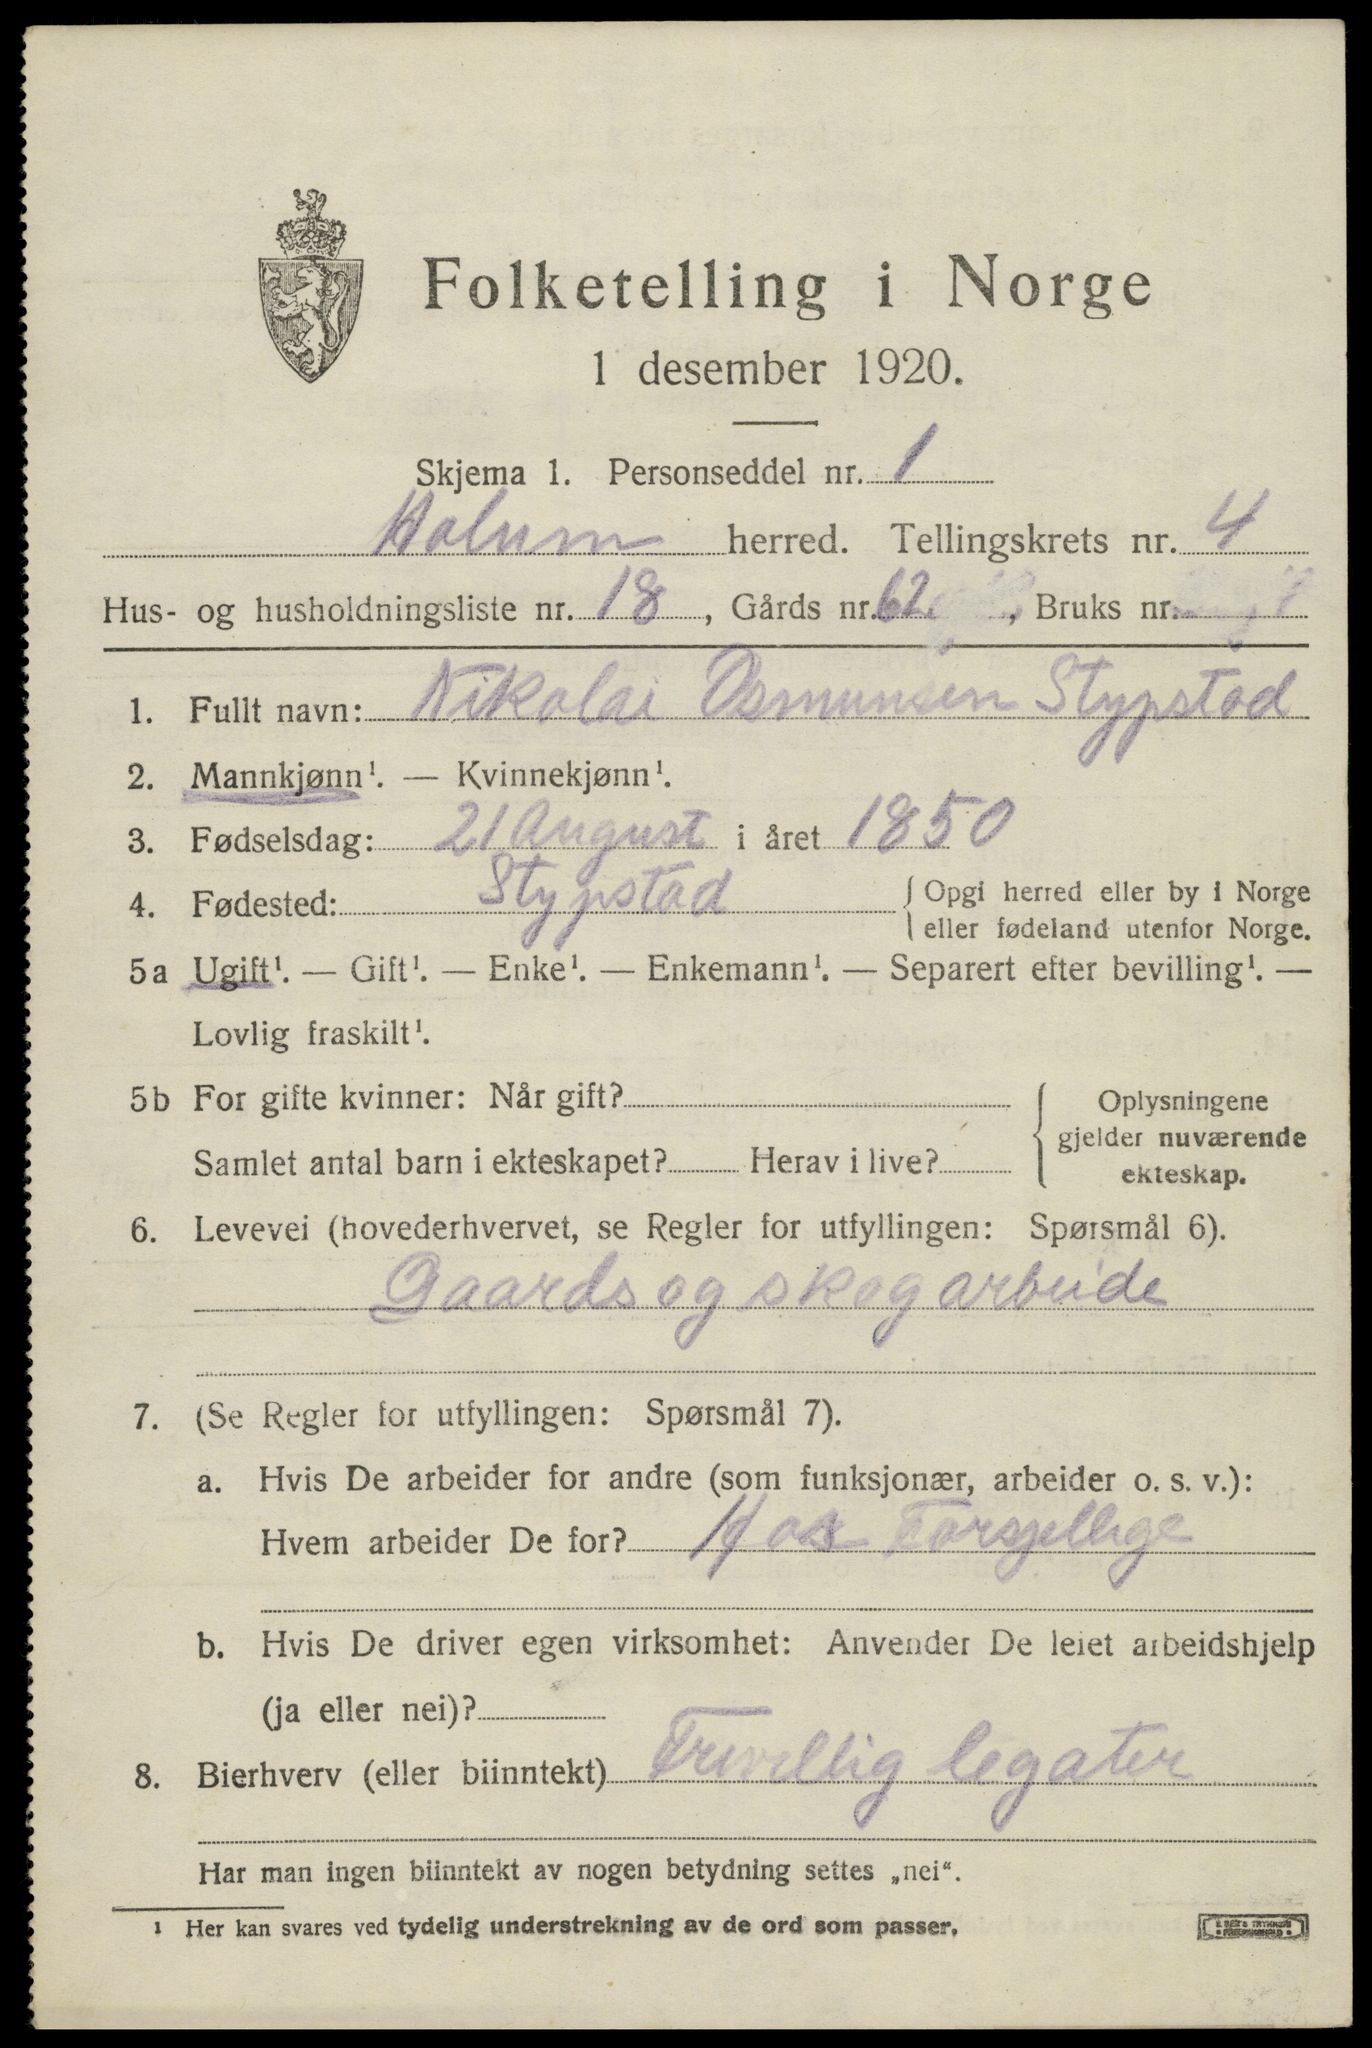 Folketelling i Norge
1 desember 1920.
Skjema 1. Personseddel nr. 1
Holum herred. Tellingskrets nr. 4
Hus- og husholdningsliste nr. 18, Gårds nr. 62, Bruks nr. 7
1. Fullt navn: Nikolai Osmunsen Stypstad
2. Mannkjønn¹. — Kvinnekjønn¹.
3. Fødselsdag: 21 August i året 1850
4. Fødested: Stypstad { Opgi herred eller by i Norge
eller fødeland utenfor Norge.
5a Ugift¹. — Gift¹. — Enke¹. — Enkemann¹. — Separert efter bevilling¹. —
Lovlig fraskilt¹.
5b For gifte kvinner: Når gift? { Oplysningene
gjelder nuværende
Samlet antal barn i ekteskapet? Herav i live? ekteskap.
6. Levevei (hovederhvervet, se Regler for utfyllingen: Spørsmål 6).
Gaards og skog arbeide
7. (Se Regler for utfyllingen: Spørsmål 7).
a. Hvis De arbeider for andre (som funksjonær, arbeider o. s. v.):
Hvem arbeider De for? Hos Forsjellige
b. Hvis De driver egen virksomhet: Anvender De leiet arbeidshjelp
(ja eller nei)?
8. Bierhverv (eller biinntekt) Frivellig legater
Har man ingen biinntekt av nogen betydning settes „nei“.
¹ Her kan svares ved tydelig understrekning av de ord som passer.